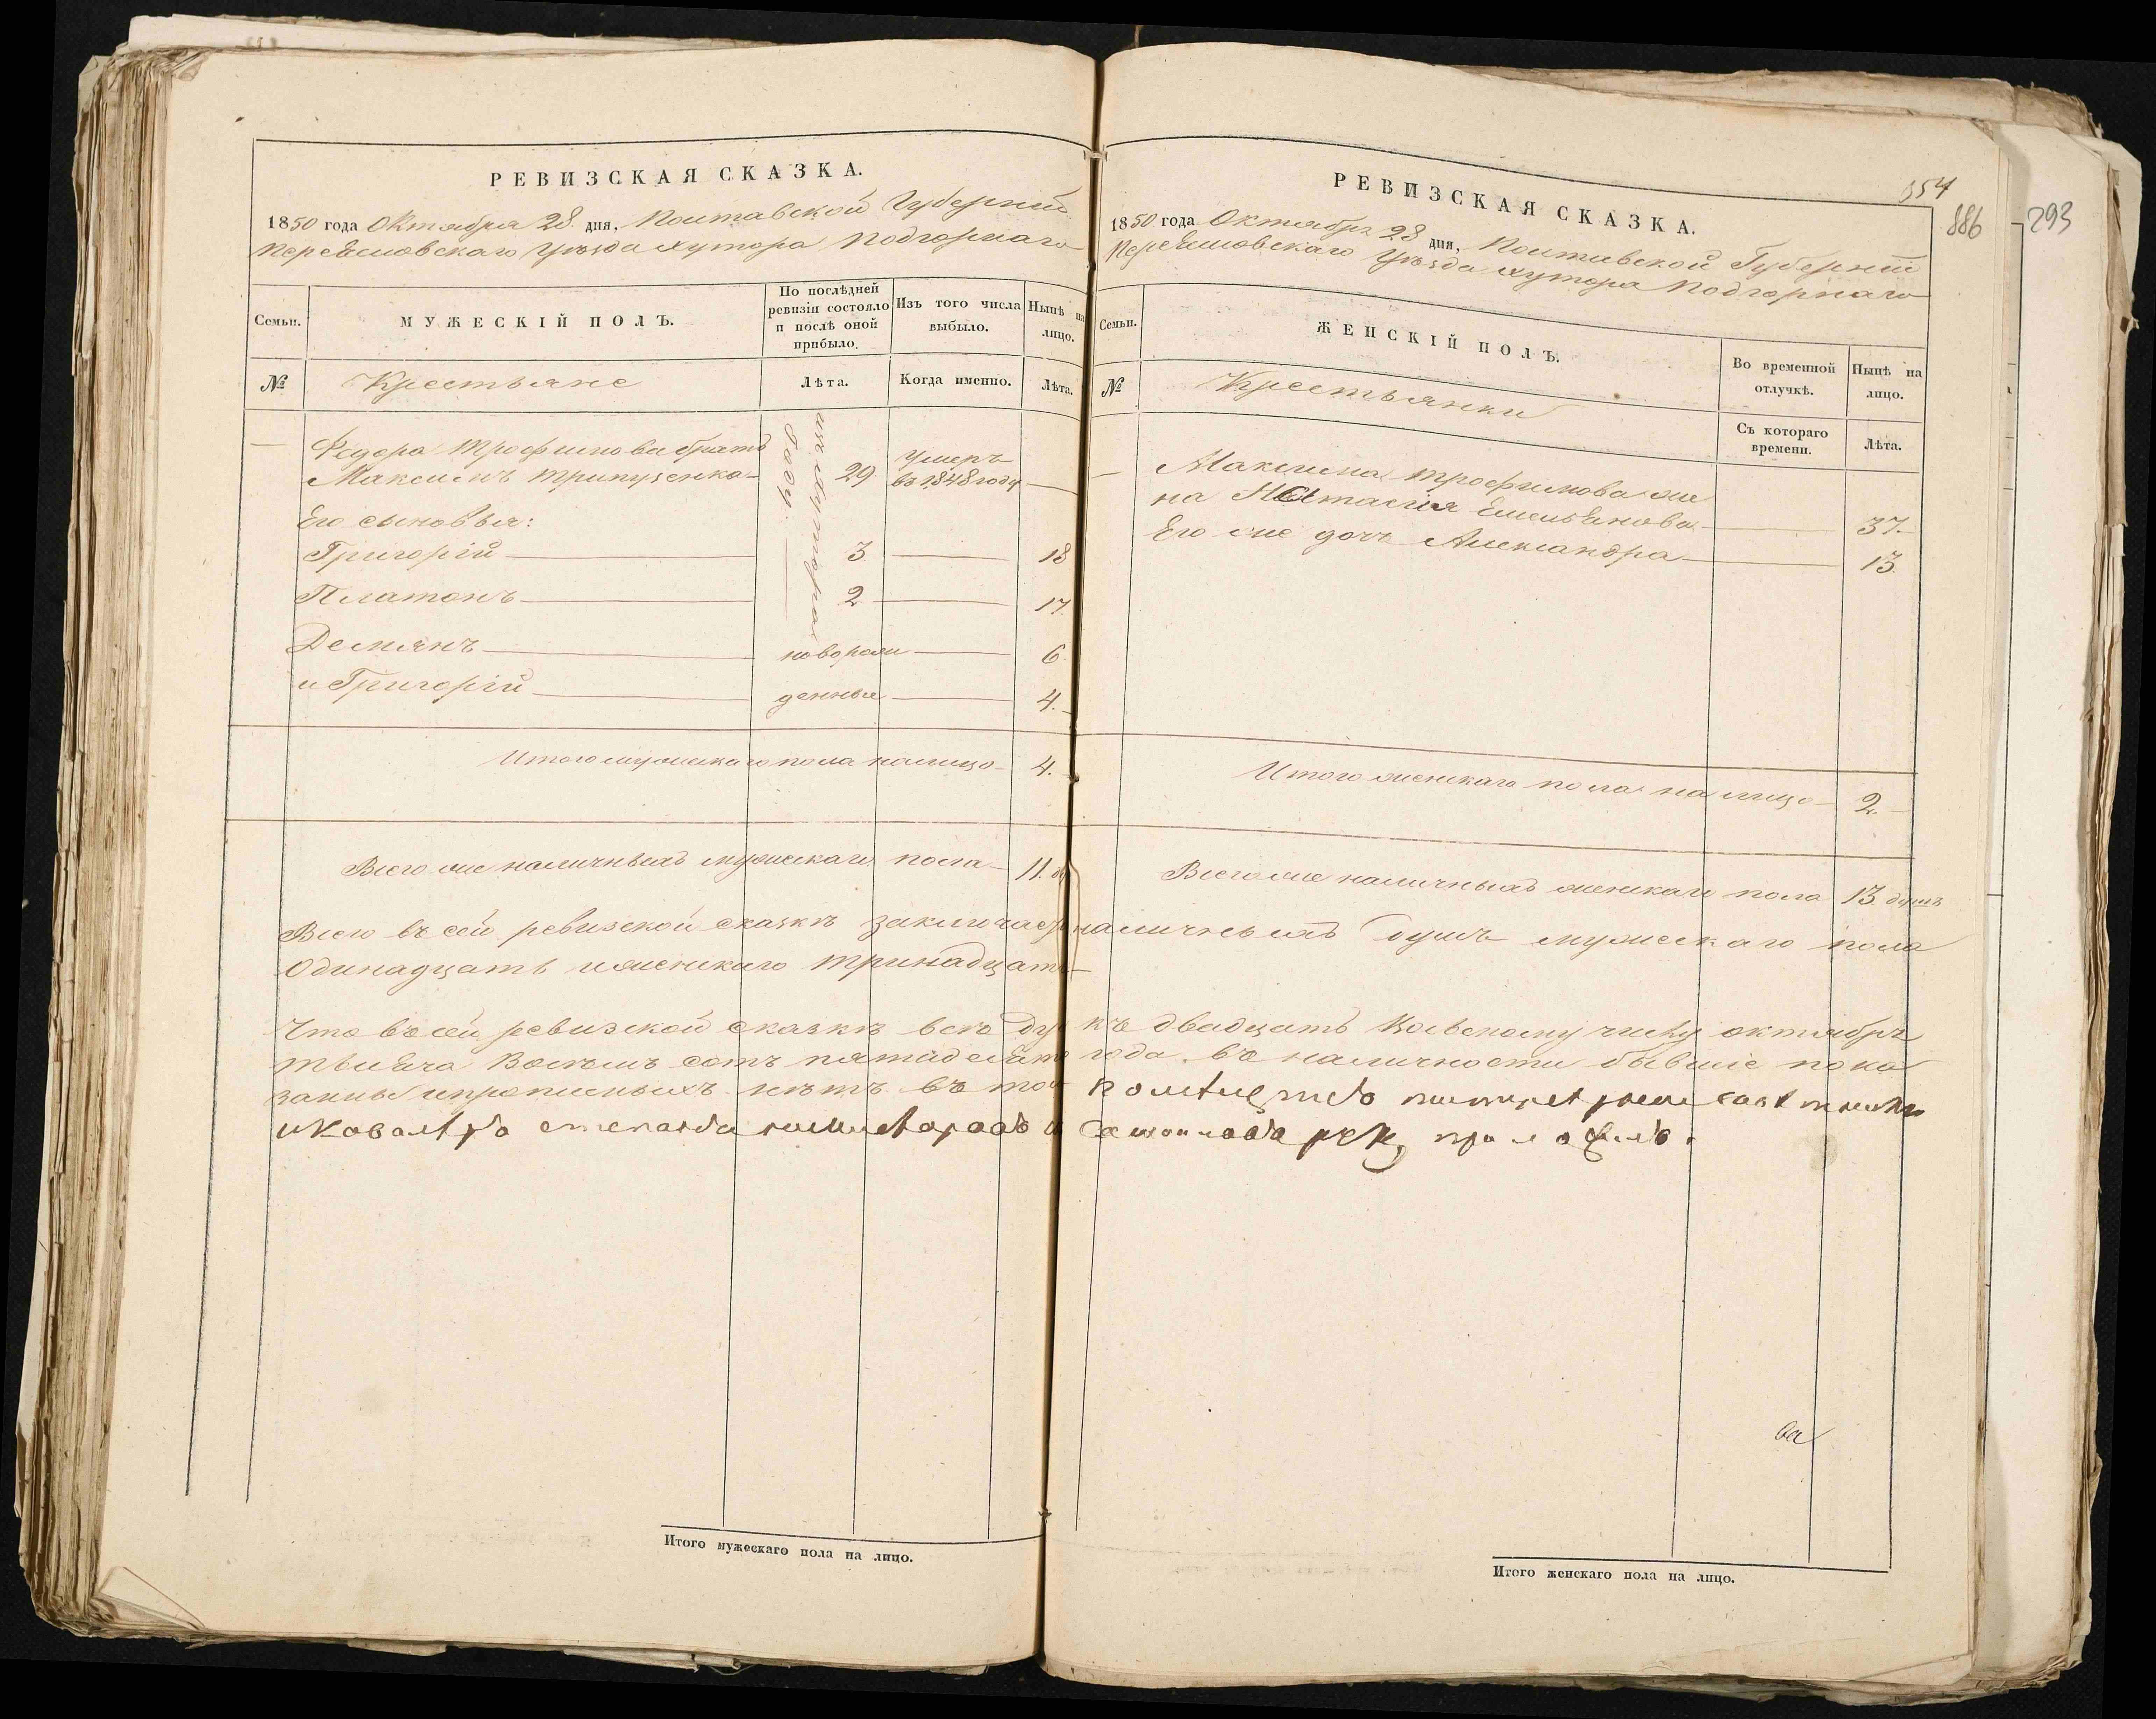 РЕВИЗСКАЯ СКАЗКА.
1850 года Октября 28 дня, Полтавской Губернии
Переяславского Уѣзда хутора Подгорнаго
Семьи.
МУЖЕСКІЙ ПОЛЪ.
По послѣдней ревизіи состояло и послѣ оной прибыло.
Изъ того числа выбыло.
Нынѣ на лицо.
№
Крестьяне
Лѣта.
Когда именно.
Лѣта.
Федора Трофимова братъ
Максимъ 29 умеръ въ 1848 году
Его сыновья:
Григорій 3 18
Платонъ 2 17.
Демянъ новорож 6
и Григорій денные 4.
Итого мужескаго пола налицо 4.
Всего же наличныхъ мужескаго пола 11.
РЕВИЗСКАЯ СКАЗКА.
354
886
293
1850 года Октября 28 дня, Полтавской Губерніи
Переяславского Уѣзда хутора Подгорнаго
Семьи.
ЖЕНСКІЙ ПОЛЪ.
Во временной отлучкѣ.
Нынѣ на лицо.
№
Крестьянки
Съ котораго времени.
Лѣта.
Максима Трофимова же
на Настасія Емельянова 37.
Его же дочь Александра 13.
Итого женскаго пола на лицо 2.
Всего же наличныхъ женскаго пола 13 душъ
Всего въ сей ревизской сказкѣ наличныхъ душъ мужескаго пола
Одинадцать и женскаго тринадцать
Что въ сей ревизской сказкѣ всѣ къ двадцать числу октября
тысяча Восемъ сотъ пятидесято года въ наличности бывшіе пока
заны и прописныхъ нѣтъ въ том
Итого мужескаго пола на лицо.
Итого женскаго пола на лицо.